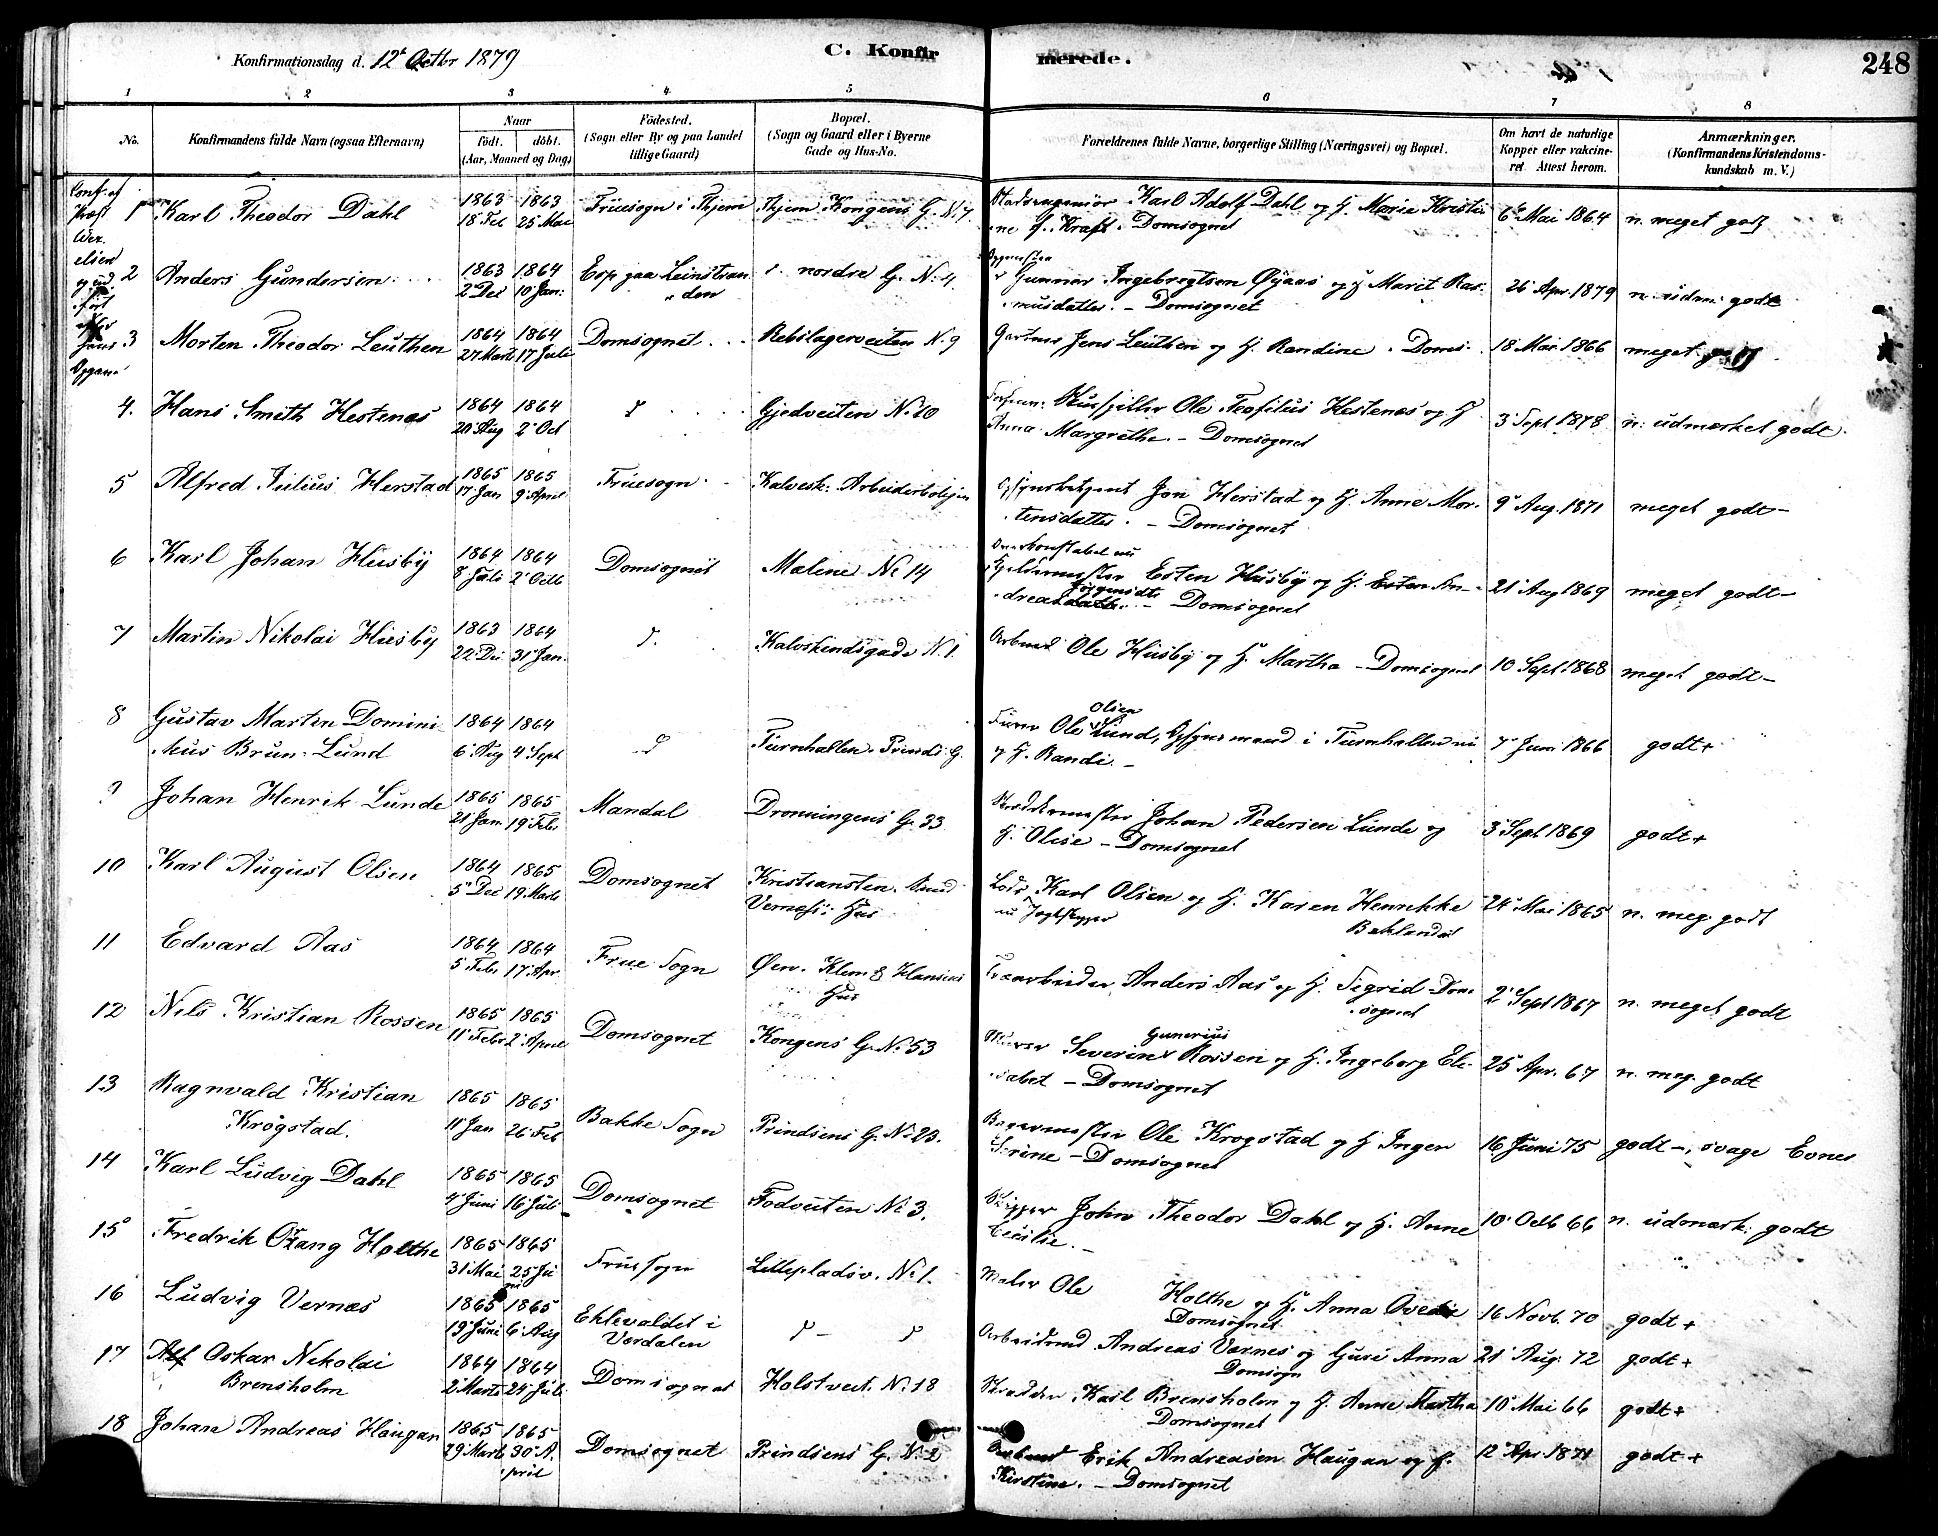 Konfirmationsdag d. 12t Octbr 1879
C. Konfirmerede.
248
1 2 3 4 5 6 7 8
No.
Konfirmandens fulde Navn (ogsaa Efternavn)
Naar
født. døbt.
(Aar, Maaned og Dag)
Fødested.
(Sogn eller By og paa Landet
tillige Gaard)
Bopæl.
(Sogn og Gaard eller i Byerne
Gade og Hus-No.
Forældrenes fulde Navne, borgerlige Stilling (Næringsvei) og Bopæl.
Om havt de naturlige
Kopper eller vakcine-
ret Attest herom.
Anmærkninger.
(Konfirmandens Kristendoms-
kundskab m. V.)
1 Karl Theodor Dahl 1863 18 Feb 1863 25 Mai Fruesogn i Thjem Thjem Kongens G. N. 7 Karl Adolf Dahl og H. Maria Kristi
ne f. Kraft. Domsognet 6 Mai 1864 n. meget godt
2 Anders Gundersen 1863 2 Dec 1864 10 Jan: Esp paa Leinstran
den nordre G. N. 4. Gunnar Ingebregtsen Øyaas og H. Marit Ras-
musdatter. - Domsognet 26 Apr 1879 n. udm: godt
3 Morten Theodor Leuthen 1864 27 Marts 1864 17 Juli Domsognet Rebslagerveiten N. 9 Gartner Jens Leuthen og H. Randine. Doms. 18 Mai 1866 meget godt
4. Hans Smith Hestenæs 1864 20 Aug 1864 2 Oct Gjedveiten N. 10 Ole Teofilus Hestenæs og H
Anna Margrethe. - Domsognet 3 Sept 1878 n: udmærket godt.
5 Alfred Julius Herstad 1865 17 Jan 1865 9 April Fruesogn Kalvesk: Arbeiderbolign Jon Herstad og H. Anne Mor-
tensdatter. - Domsognet. 9 Aug. 1871 meget godt-
6 Karl Johan Husby 1864 8 Juli 1864 2 Octb Domsognet Malene N. 14 Overkonstabel nu
Esten Husby og H. Esten An-
dreasdatt. - Domsognet 21 Aug 1869 meget godt-
7 Martin Nikolai Husby 1863 22 De 1864 31 Jan. Kalvskindsgade N. 1. Arbmd Ole Husby og H. Martha - Domsognet 10 Sept 1868 meget godt-
8 Gustav Martin Domini-
kus Brun-Lund 1864 6 Aug 1864 4 Sept Turnhallen. Prinds G. Furer Ole Olsen Lund, Opsynsmand i Turnhallen nu
og H. Randi. - 7 Juni 1866 godt+
9 Johan Henrik Lunde 1865 21 Jan 1865 19 Febr Mandal Dronningens G. 33 Skræddermester Johan Pedersen Lunde og
H. Olise - Domsognet 3 Sept 1869 godt+
10 Karl August Olsen 1864 5 Dec 1865 19 Marts Domsognet Kristiansten.
Vernæs's Hus Lods Karl Olsen og H. Karen Henrikke
nu Jagtskipper Baklandet 24 Mai 1865 n. meg. godt
11 Edvard Aas 1864 5 Febr 1864 17 Apr Frue Sogn Øen. Klem & Hansens
Hus Træarbeider Anders Aas og H. Sigrid - Dom-
sognet 2 Sept 1867 n. meget godt
12 Nils Kristian Rossen 1865 11 Febr 1865 2 April Domsognet Kongens G. N. 53 Murer Severin Gunerius Rossen og H. Ingeborg Eli-
sabet - Domsognet 25 Apr. 67 n. meg. godt
13 Ragnvald Kristian
Krogstad. 1865 11 Jan 1865 26 Feb Bakke Sogn Prindsens G. N. 23. Bagermester Ole Krogstad og H Inger
Serine - Domsognet 16 Juni 75 godt -, svage Evner
14 Karl Ludvig Dahl 1865 4 Juni 1865 16 Juli Domsognet Fodveiten N. 3. Skipper John Theodor Dahl og H. Anne
Cecilie. - 10 Octb 66 n. udmærk: godt
15 Fredrik Ozang Holthe 1865 31 Mai 1865 25 Ju
ni Fruesogn Lillepladsv. N. 1. Maler Ole Holthe og H. Anna Ovedie
Domsognet 16 Novb. 70 godt+
16 Ludvig Vernæs 1865 19 Juni 1865 6 Aug Eklevaldet i
Værdalen Arbeidsmd Andreas Vernes og Guri Anna
Domsogn 21 Aug. 72 godt+
17 Alf Oskar Nikolai
Brensholm 1864 2 Marts 1864 24 Juli Domsognet Holstveit. N. 18 Skrædder Karl Brensholm og H. Anne Martha
Domsognet 10 Mai 66 godt+
18 Johan Andreas Haugan 1865 29 Marts 1865 30 A-
pril Domsognet Prindsens G. N. 2 Arbmd Erik Andreasen Haugan og H.
Kirstine. - Domsognet 12 Apr 1871 godt+